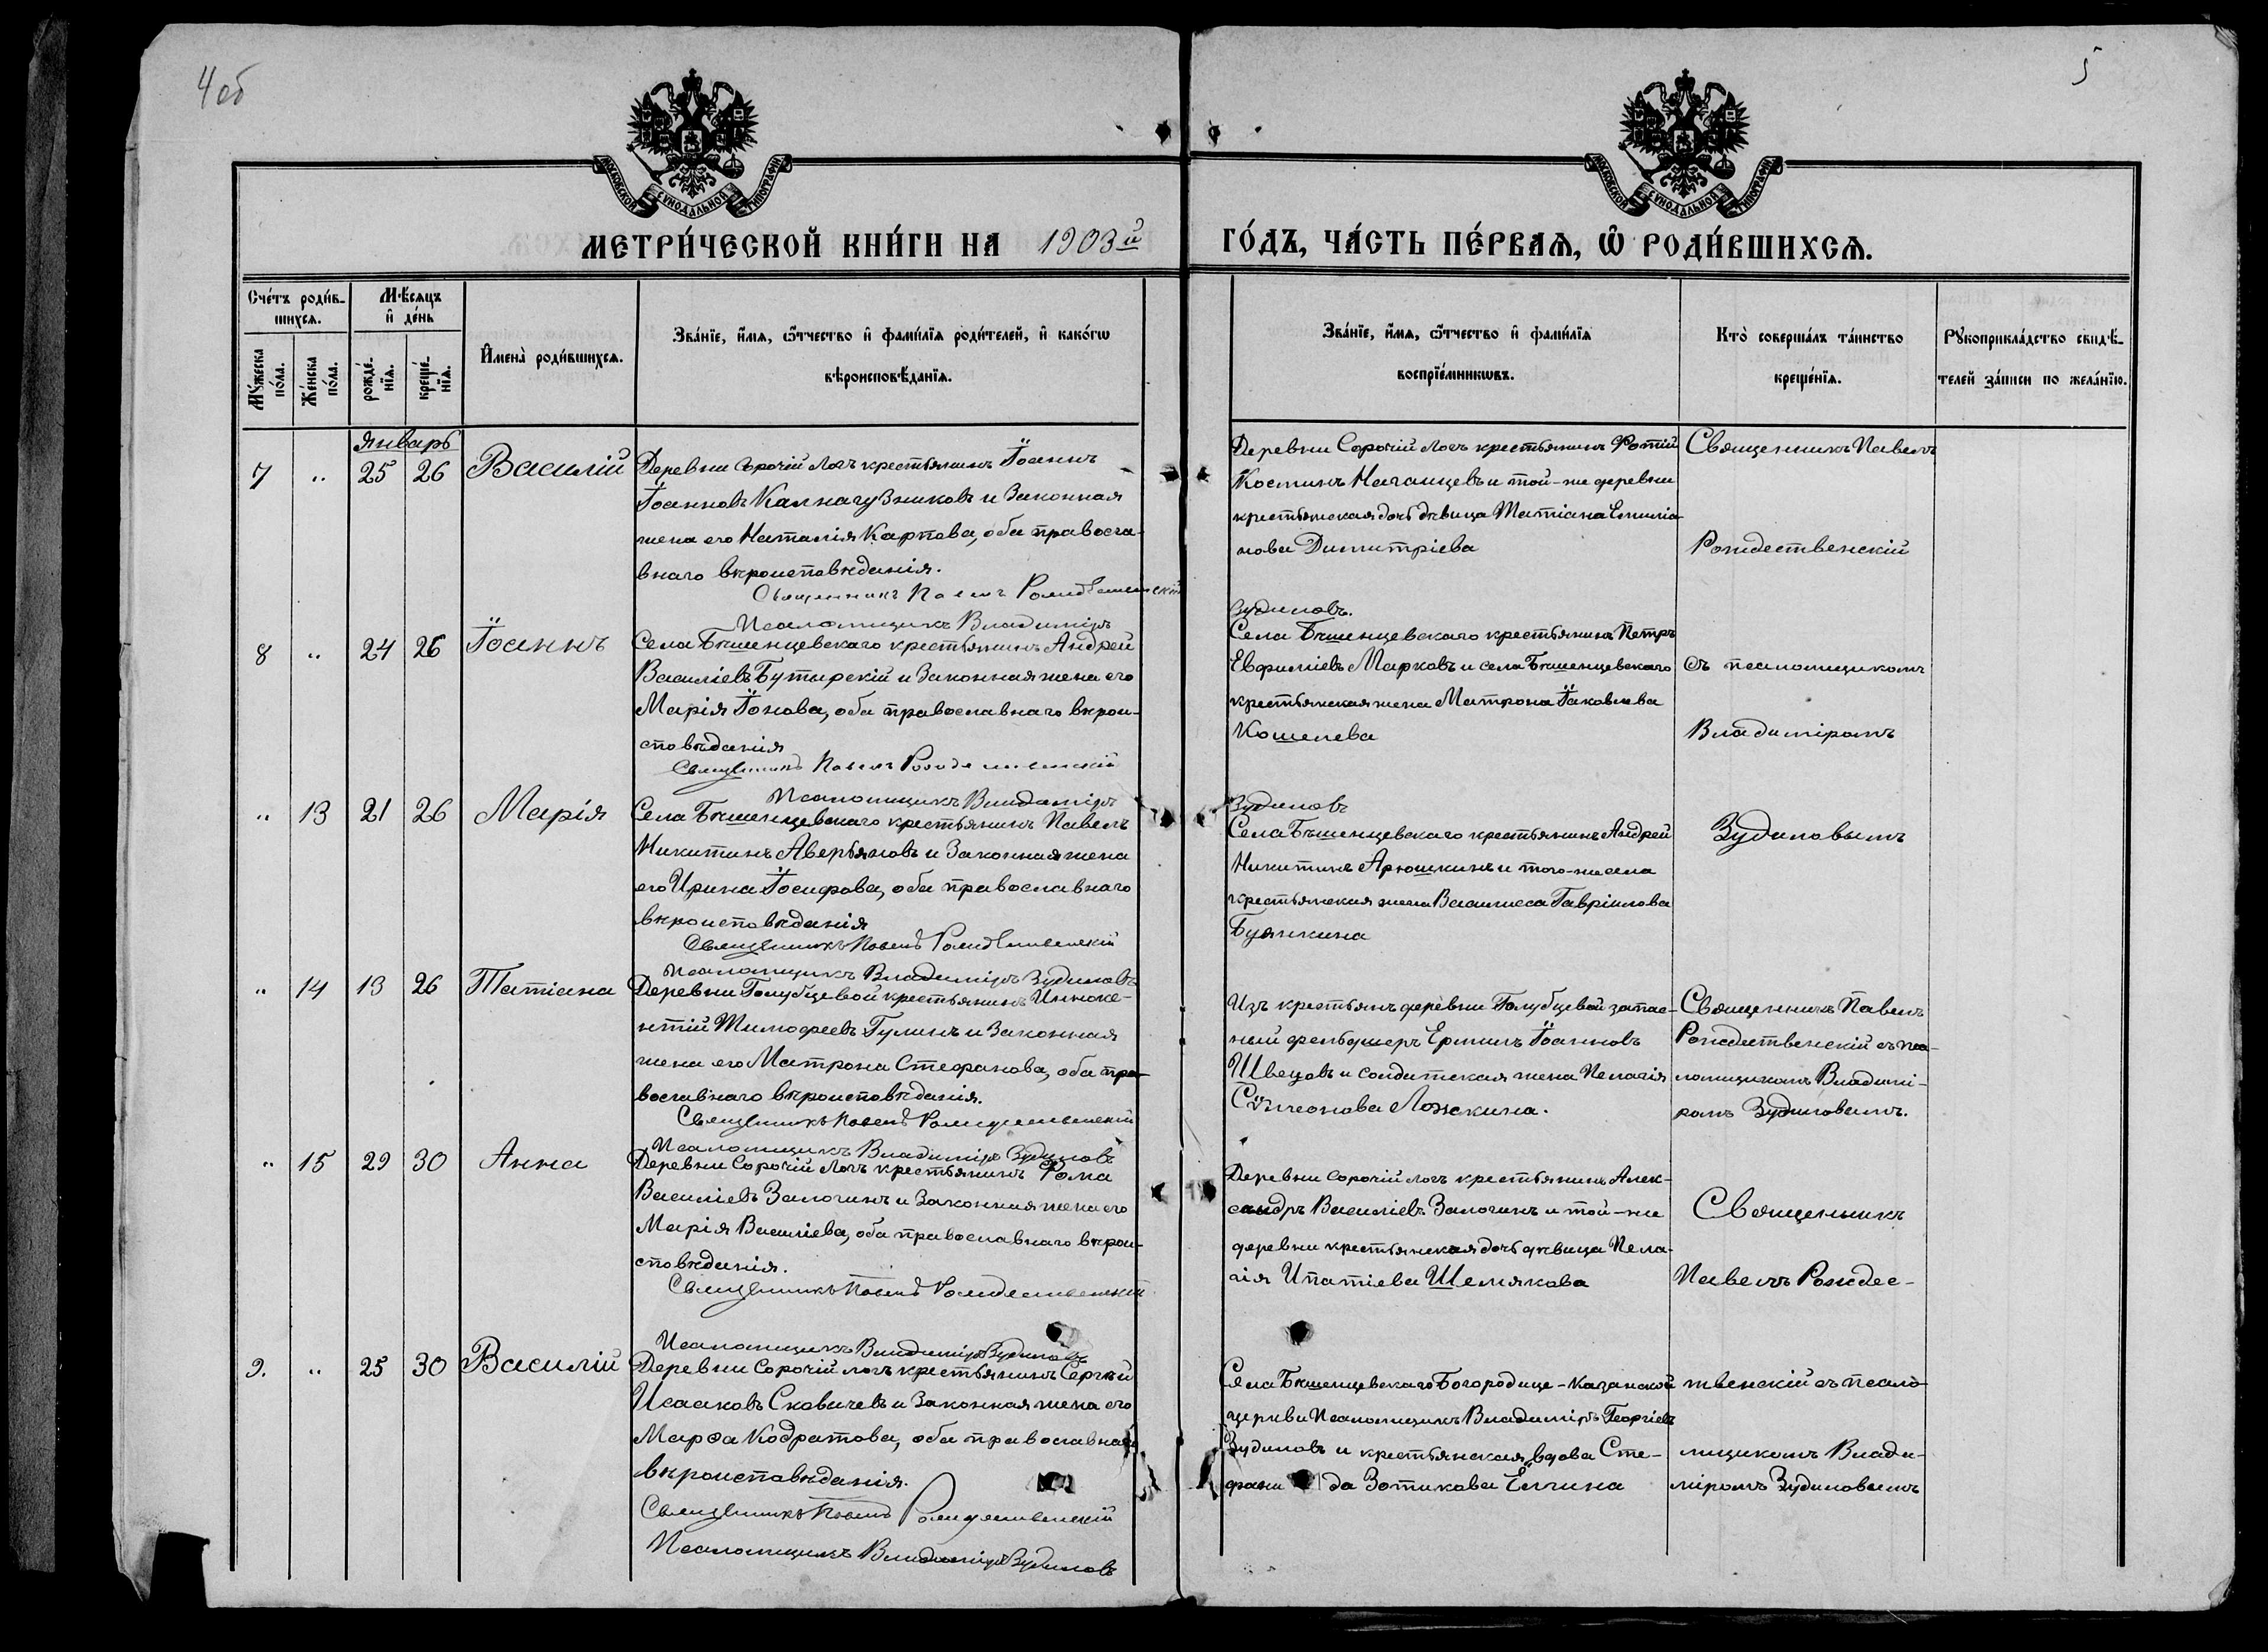 4об
5
МОСКОВСКОЙ СѴНОДАЛЬНОЙ ТИПОГРАФІИ
МОСКОВСКОЙ СѴНОДАЛЬНОЙ ТИПОГРАФІИ
МЕТРИ́ЧЕСКОЙ КНИ́ГИ НА 1903й ГО́ДЪ, ЧА́СТЬ ПЕ́РВАѦ, Ѡ РОДИ́ВШИХСѦ.
Сче́тъ роди́в-
шихсѧ.
Мꙋ́жеска
по́ла.
Же́нска
по́ла.
Мѣ́сѧцъ
и҆ де́нь
рожде́-
нїѧ.
креще́-
нїѧ.
И҆мена̀ роди́вшихсѧ.
Зва́нїе, и҆́мѧ, ѻ҆́тчество и҆ фами́лїѧ роди́телей, и҆ како́гѡ
вѣроисповѣ́данїѧ.
Зва́нїе, и҆́мѧ, ѻ҆́тчество и҆ фами́лїѧ
воспрїе́мникѡвъ.
Кто̀ соверша́лъ та́инство
креще́нїѧ.
Рꙋкоприкла́дство свидѣ́-
телей за́писи по жела́нїю.
Январь
7 " 25 26 Василій
Деревни Сорочій Логъ крестьянинъ Іоаннъ
Іоанновъ Калнагузниковъ и законная
жена его Наталія Карпова, оба правосла-
внаго вѣроисповѣданія.
Священникъ Павелъ Рождественскій
Псаломщикъ Владиміръ
Зудиловъ.
Деревни Сорочій Логъ крестьянинъ Фотій
Костинъ Наганцевъ и той-же деревни
крестьянская дочь дѣвица Татіана Емилiа-
нова Димитріева
Священникъ Павелъ
Рождественскій
8 " 24 26 Іоаннъ
Села Бѣшенцевскаго крестьянинъ Андрей
Василіевъ Бутырскій и законная жена его
Марія Іонова, оба православнаго вѣрои-
сповѣданія
Священникъ Павелъ Рождественскій
Псаломщикъ Владиміръ
Зудиловъ
Села Бѣшенцевскаго крестьянинъ Петръ
Евфиміевъ Марковъ и села Бѣшенцевскаго
крестьянская жена Матрона Іаковлева
Кошелева
съ псаломщикомъ
Владиміромъ
" 13 21 26 Марія
Села Бѣшенцевскаго крестьянинъ Павелъ
Никитинъ Аверьяновъ и законная жена
его Ирина Іосифова, оба православнаго
вѣроисповѣданія
Священникъ Павелъ Рождественскій
Псаломщикъ Владиміръ Зудиловъ
Села Бѣшенцевскаго крестьянинъ Андрей
Никитинъ Арюшкинъ и того-же села
крестьянская жена Василиса Гавріилова
Буянкина
Зудиловымъ
" 14 13 26 Татіана
Деревни Голубцевой крестьянинъ Иннокe-
нтій Тимофеевъ Гулинъ и законная
жена его Матрона Стефанова, оба пра-
вославнаго вѣроисповѣданія.
Священникъ Павелъ Рождественскій
Псаломщикъ Владиміръ Зудиловъ
Изъ крестьянъ деревни Голубцевой запас-
ный фельдшеръ Ермилъ Іоанновъ
Швецовъ и солдатская жена Пелагія
Сѵмеонова Ложкина.
Священникъ Павелъ
Рождественскій съ пса-
ломщикомъ Владимі-
ромъ Зудиловымъ.
" 15 29 30 Анна
Деревни Сорочій Логъ крестьянинъ Фома
Василіевъ Залогинъ и законная жена его
Марія Василіева, оба православнаго вѣрои-
сповѣданія.
Священникъ Павелъ Рождественскій
Псаломщикъ Владиміръ Зудиловъ
Деревни Сорочій логъ крестьянинъ Алек-
сандръ Василіевъ Залогинъ и той-же
деревни крестьянская дочь дѣвица Пела-
гія Ипатіева Шемякова
Священникъ
Павелъ Рождес-
9. " 25 30 Василій
Деревни Сорочій логъ крестьянинъ Сергѣй
Исааковъ Сковичевъ и законная жена его
Марѳа Кодратова, оба православнаго
вѣроисповѣданія.
Священникъ Павелъ Рождественскій
Псаломщикъ Владиміръ Зудиловъ
Села Бѣшенцевскаго Богородице-Казанской
церкви Псаломщикъ Владиміръ Георгіевъ
Зудиловъ и крестьянская вдова Сте-
фанида Зотикова Елгина
твенскій съ псало-
мщикомъ Влади-
міромъ Зудиловымъ